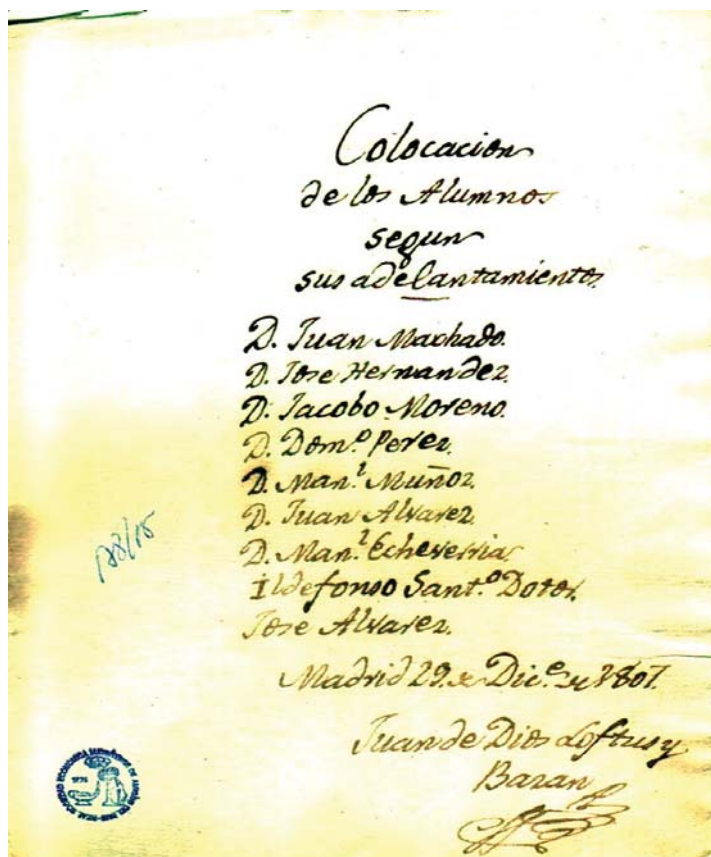 Colocacion
de los Alumnos
segun
sus adelantamientos.
D. Juan Machado.
D. Jose Hernandez.
D. Jacobo Moreno.
D. Dom.º Perez.
D. Man.l Muñoz.
D. Juan Alvarez.
D. Man.l Echeverria
Ildefonso Sant.º Dotor.
Jose Alvarez.
178/15
Madrid 29 de Dic.e de 1807.
Juan de Dios Loftus y
Bazan